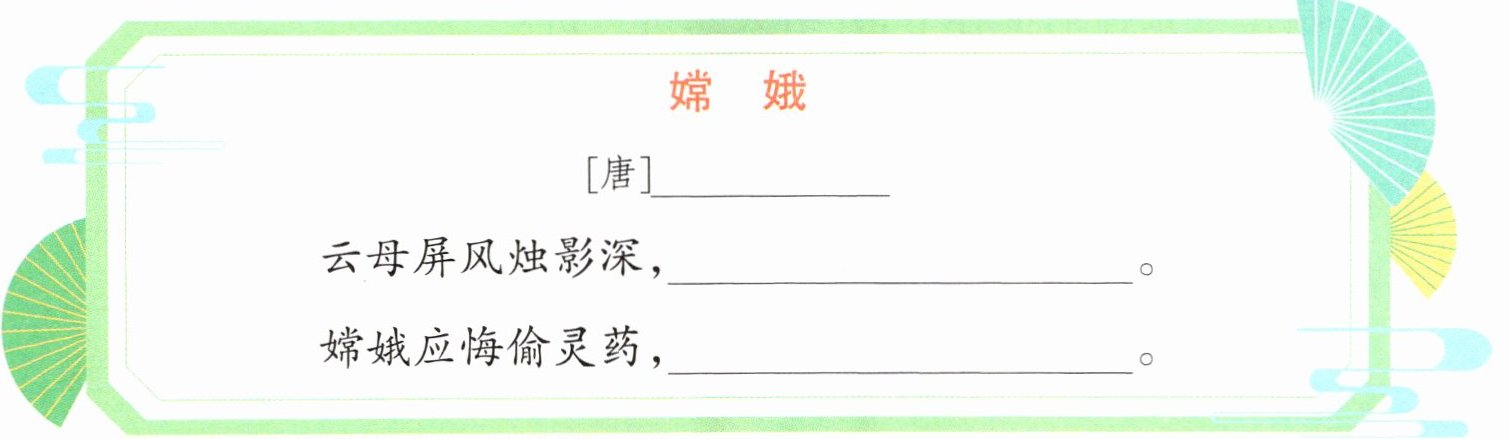 嫦 娥
[唐]___________
云母屏风烛影深，______________________。
嫦娥应悔偷灵药，______________________。